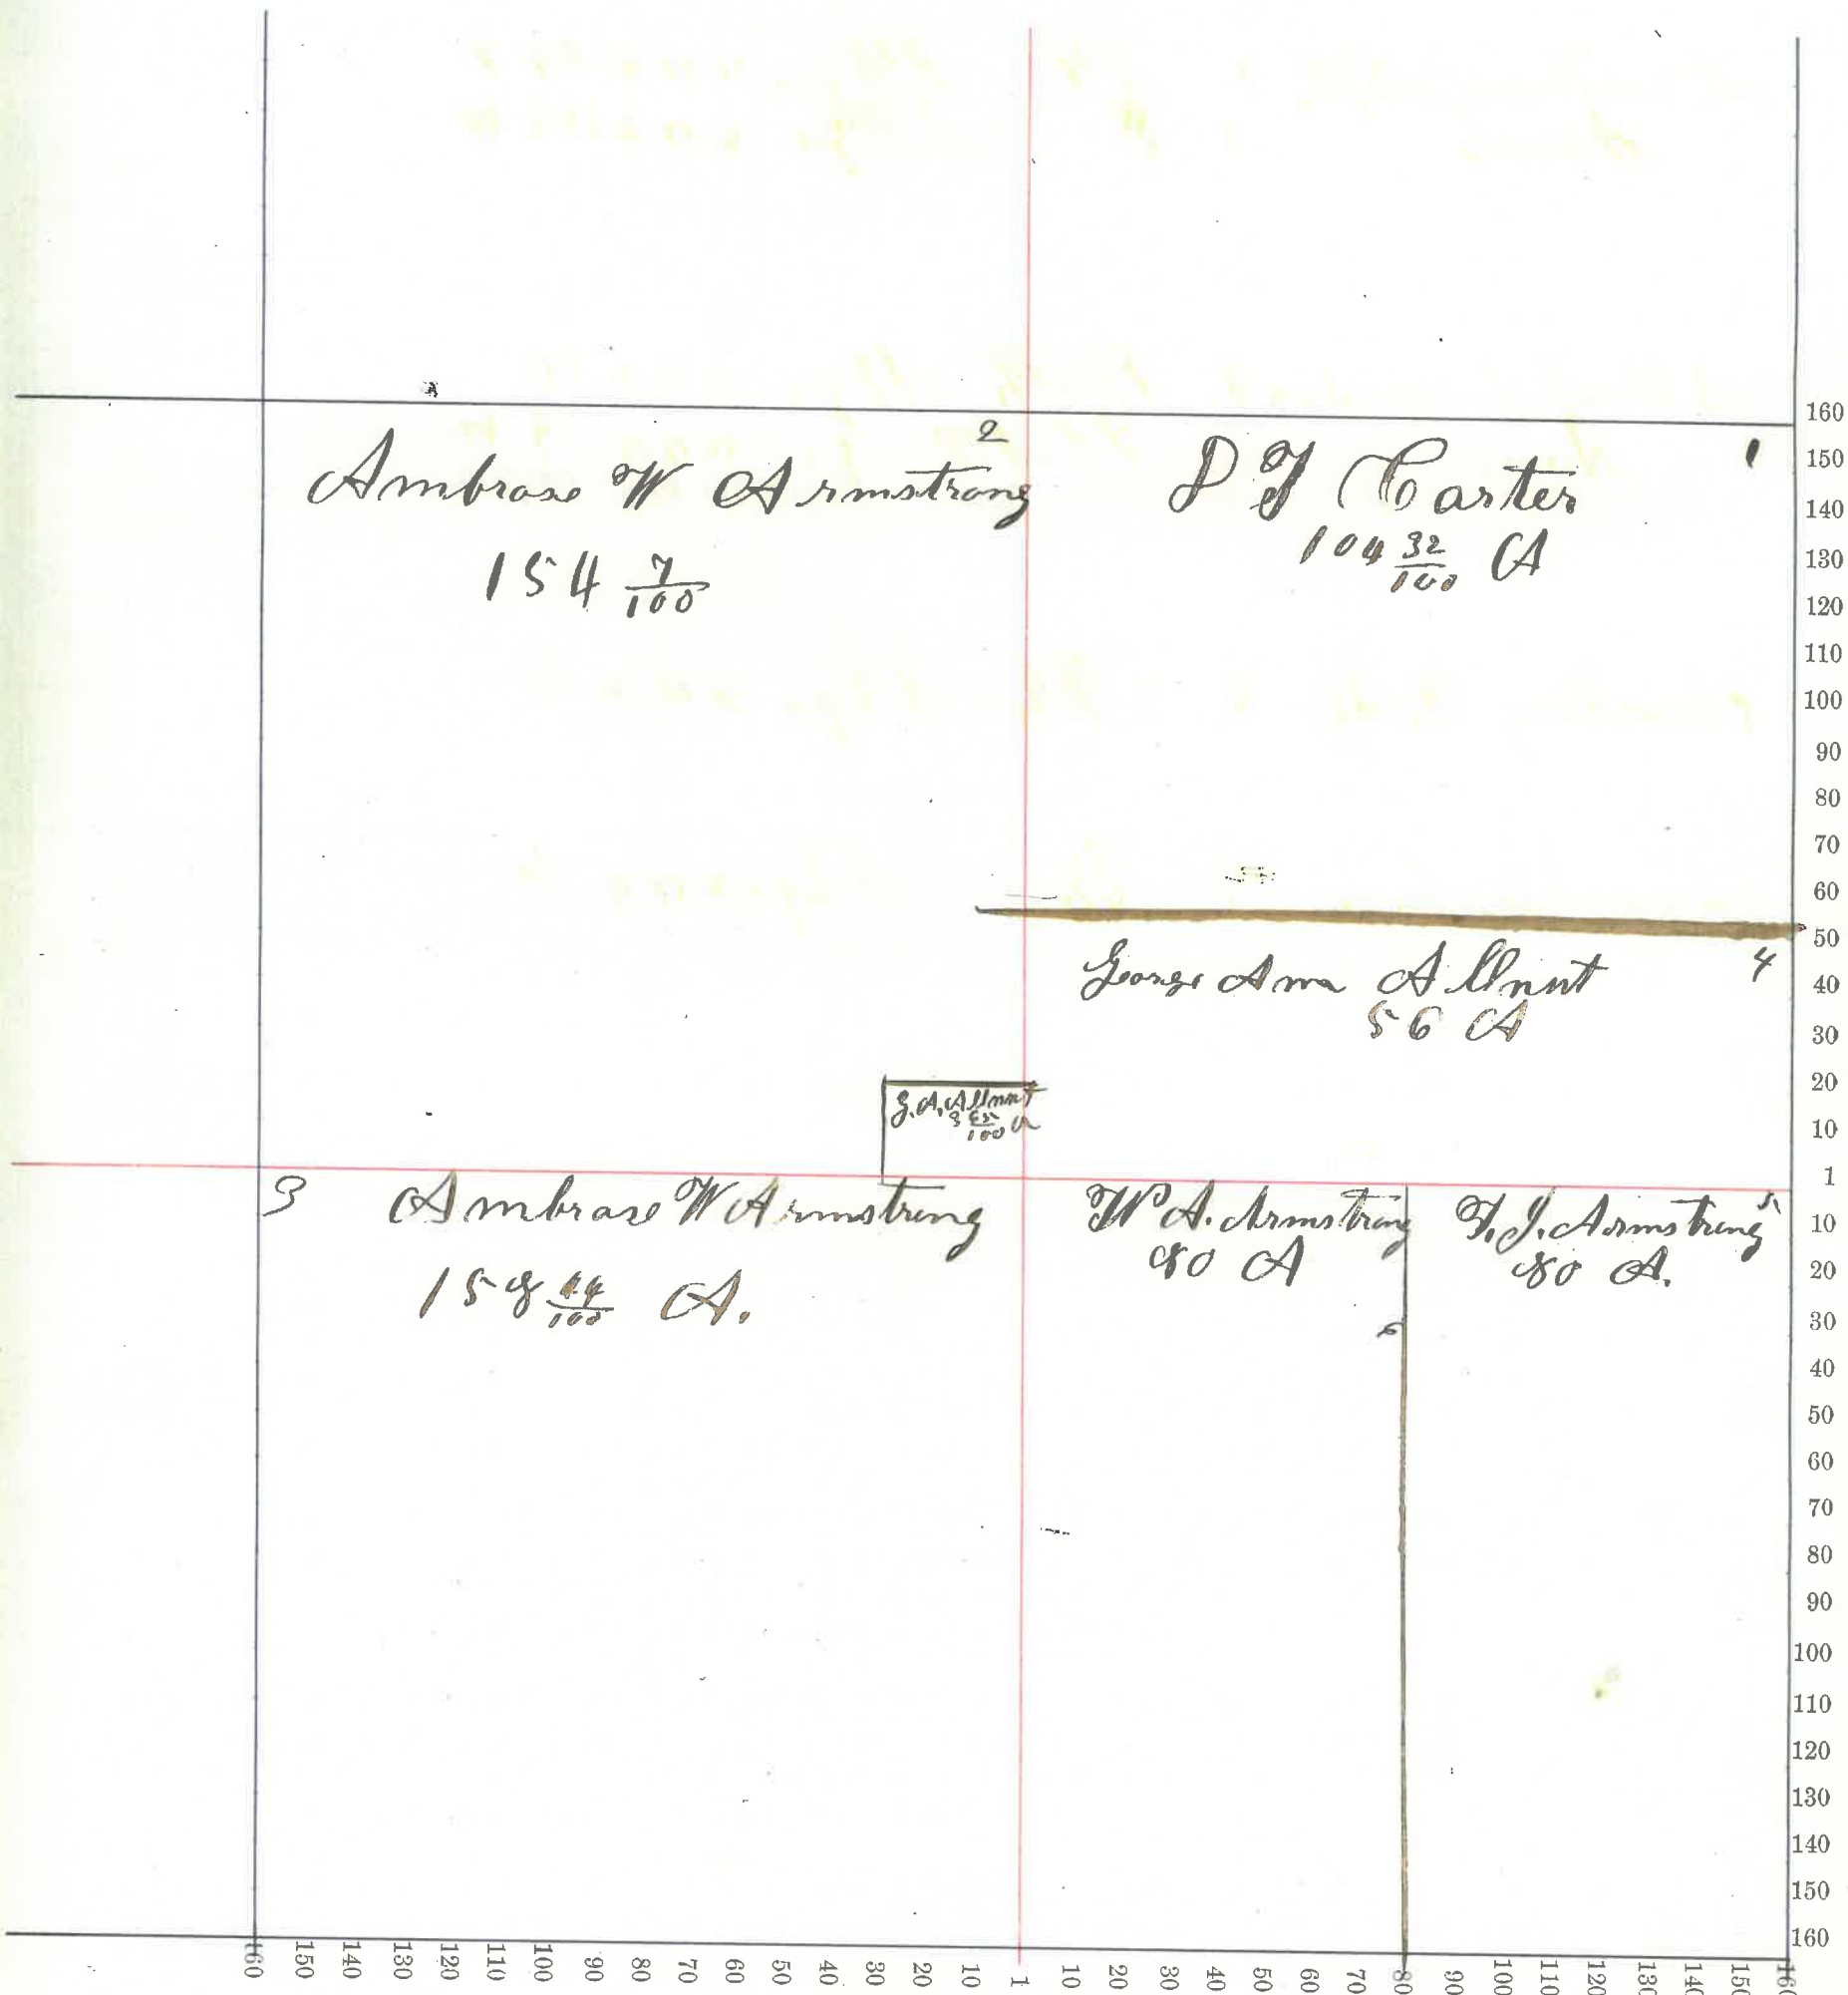 2
Ambrose W Armstrong
154 7/100
1
D F Carter
104 32/100 A
4
George Ama Allnut
56 A
G. A. Allnut
3 /100 A
3
Ambrose W Armstrong
158 44/100 A.
W A. Armstrong
80 A
6
5
F. J. Armstrong
80 A.
160
150
140
130
120
110
100
90
80
70
60
50
40
30
20
10
1
10
20
30
40
50
60
70
80
90
100
110
120
130
140
150
160
160 150 140 130 120 110 100 90 80 70 60 50 40 30 20 10 1 10 20 30 40 50 60 70 80 90 100 110 120 130 140 150 160